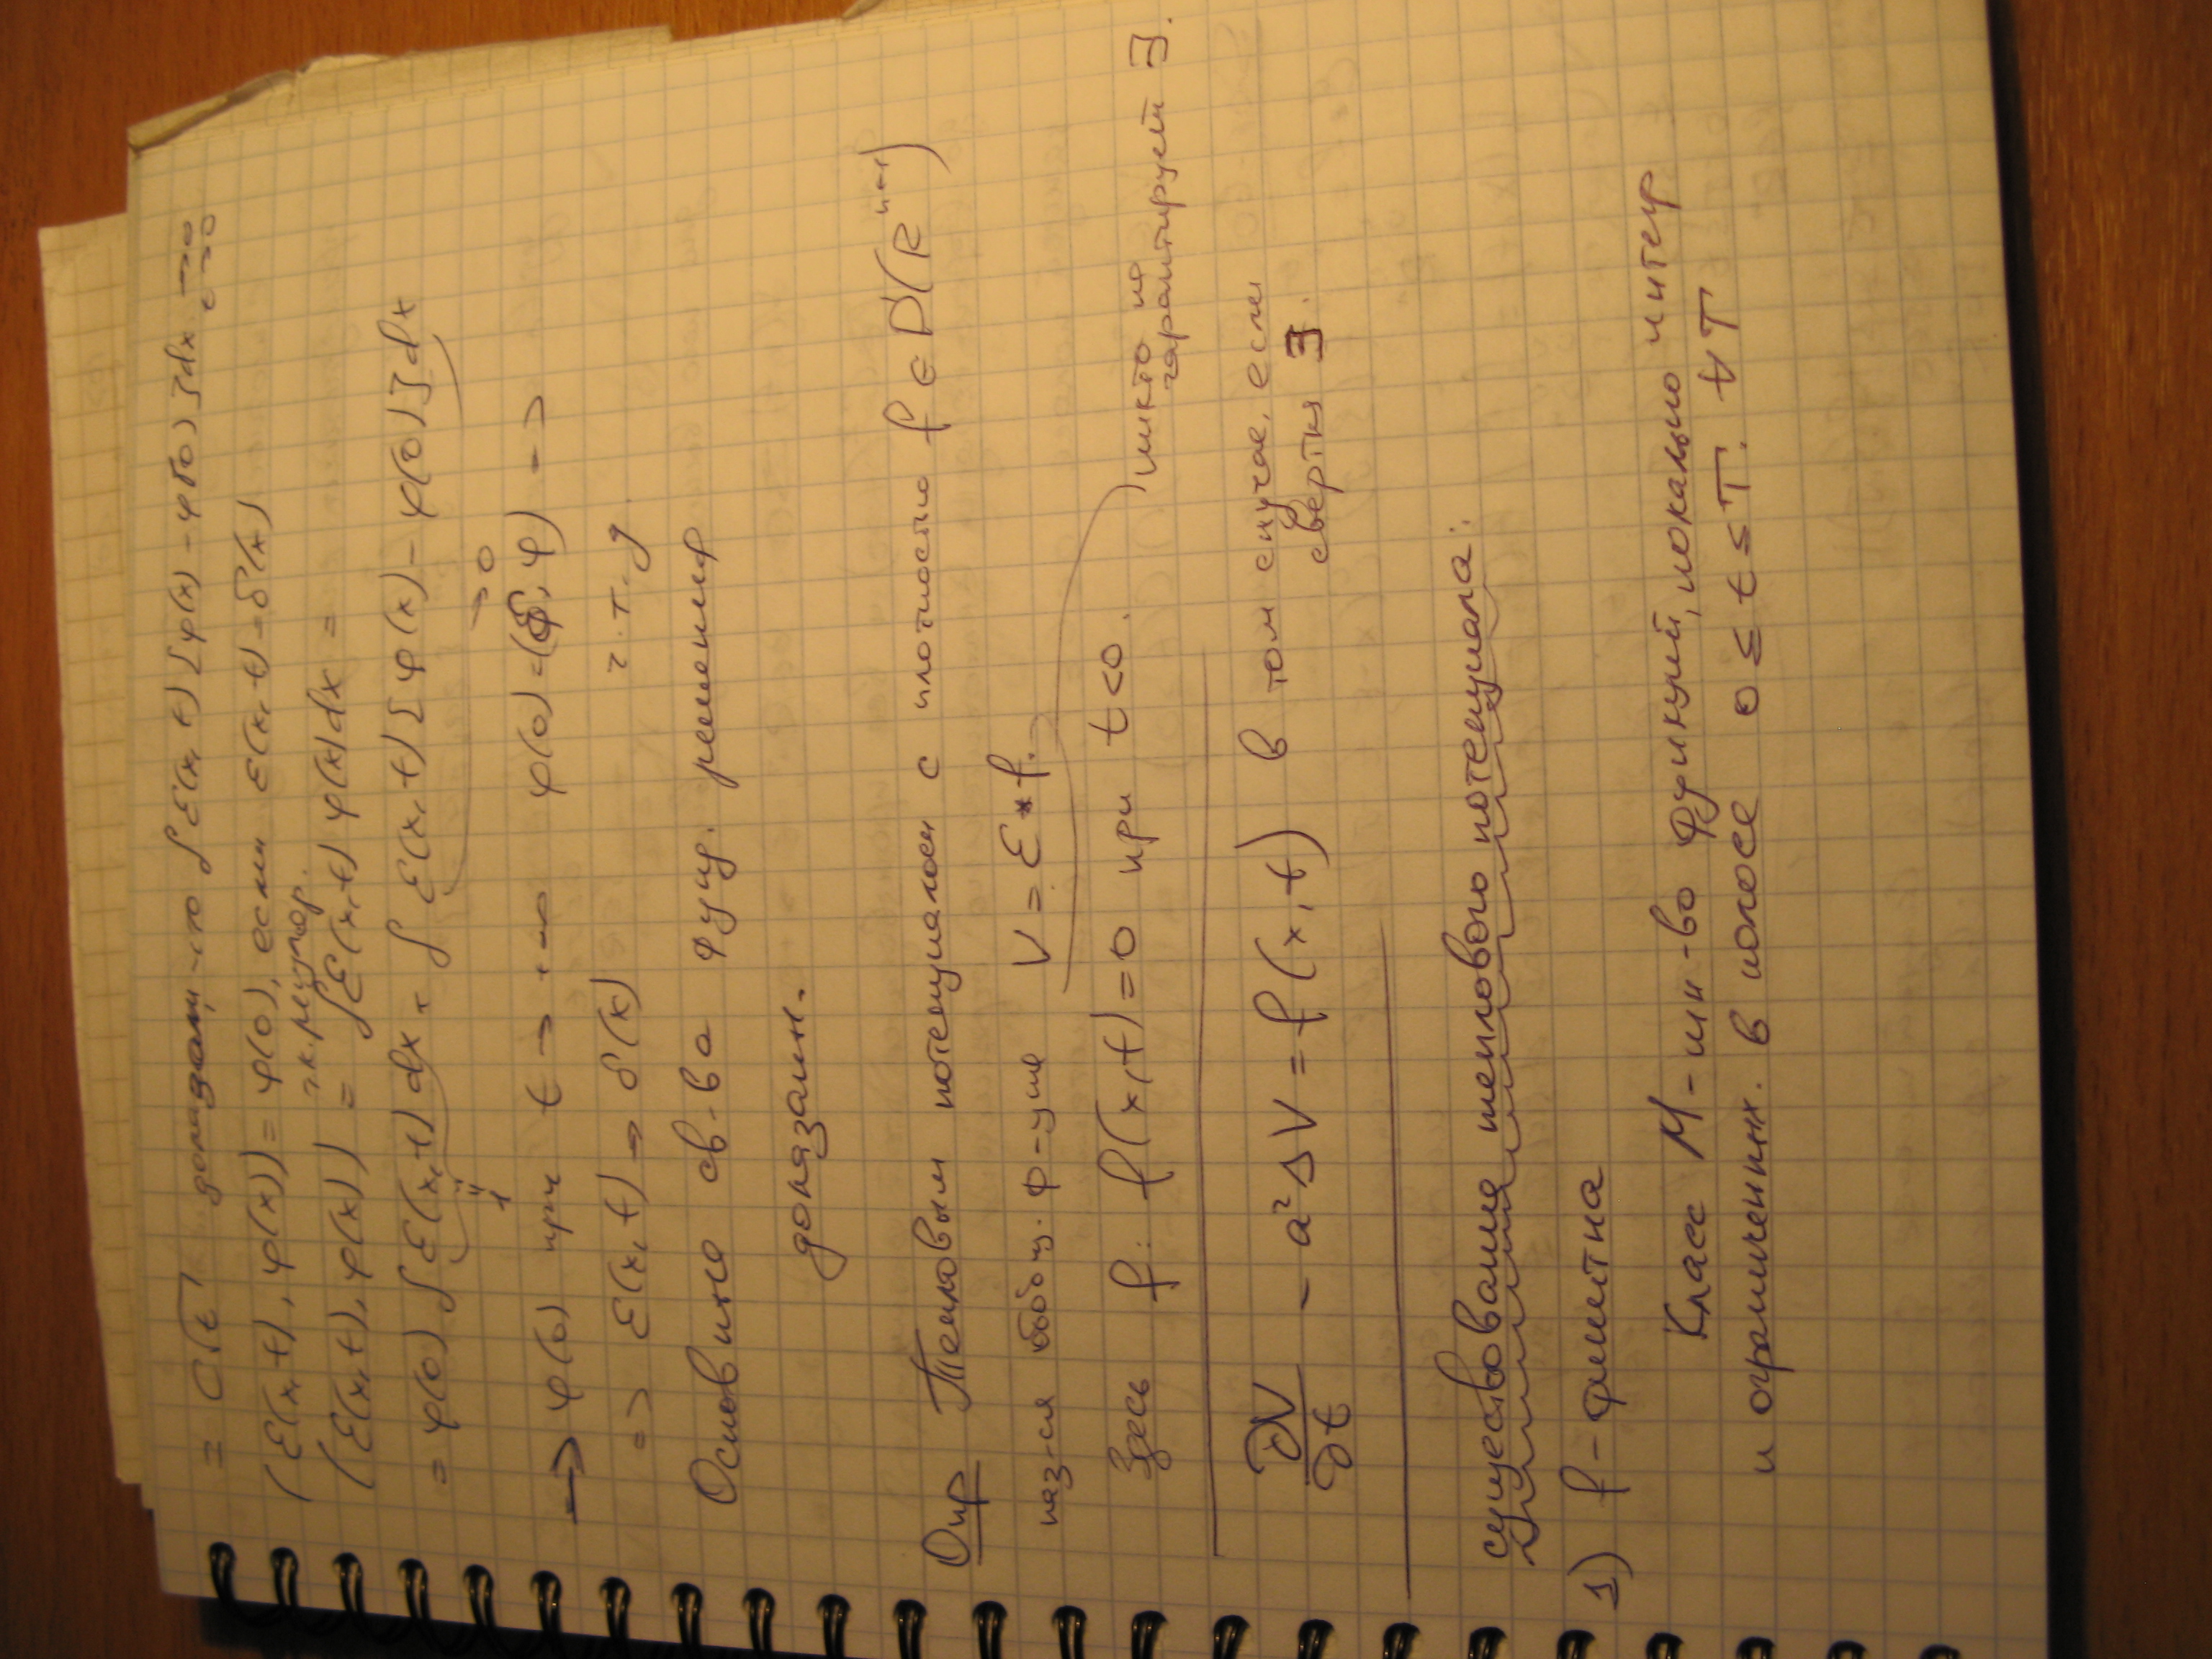 = C√t доказали, что ∫ ℰ(x,t) [φ(x) - φ(0)]dx → 0
t→0
(ℰ(x,t), φ(x)) = φ(0), если ℰ(x,t) → δ(x)
т.к. регуляр.
(ℰ(x,t), φ(x)) = ∫ℰ(x,t) φ(x)dx =
= φ(0) ∫ ℰ(x,t) dx + ∫ ℰ(x,t) [φ(x) - φ(0)]dx
"1 → 0
→ φ(0) при t → +0 φ(0) = (δ, φ) =>
=> ℰ(x,t) → δ(x) ч.т.д.
Основные св-ва фунд. решения
доказаны.
Опр Тепловым потенциалом с плотностью f ∈ D'(R^{n+1})
наз-ся обобщ. ф-ция V = ℰ * f.
никто не
гарантирует ∃.
Здесь f: f(x,t)=0 при t<0.
∂V/∂t - a²ΔV = f(x,t) в том случае, если
свертка ∃.
существование теплового потенциала:
1) f - финитна
Класс M - мн-во функций, локально интегр
и ограниченных. в полосе 0 ≤ t ≤ T. ∀T